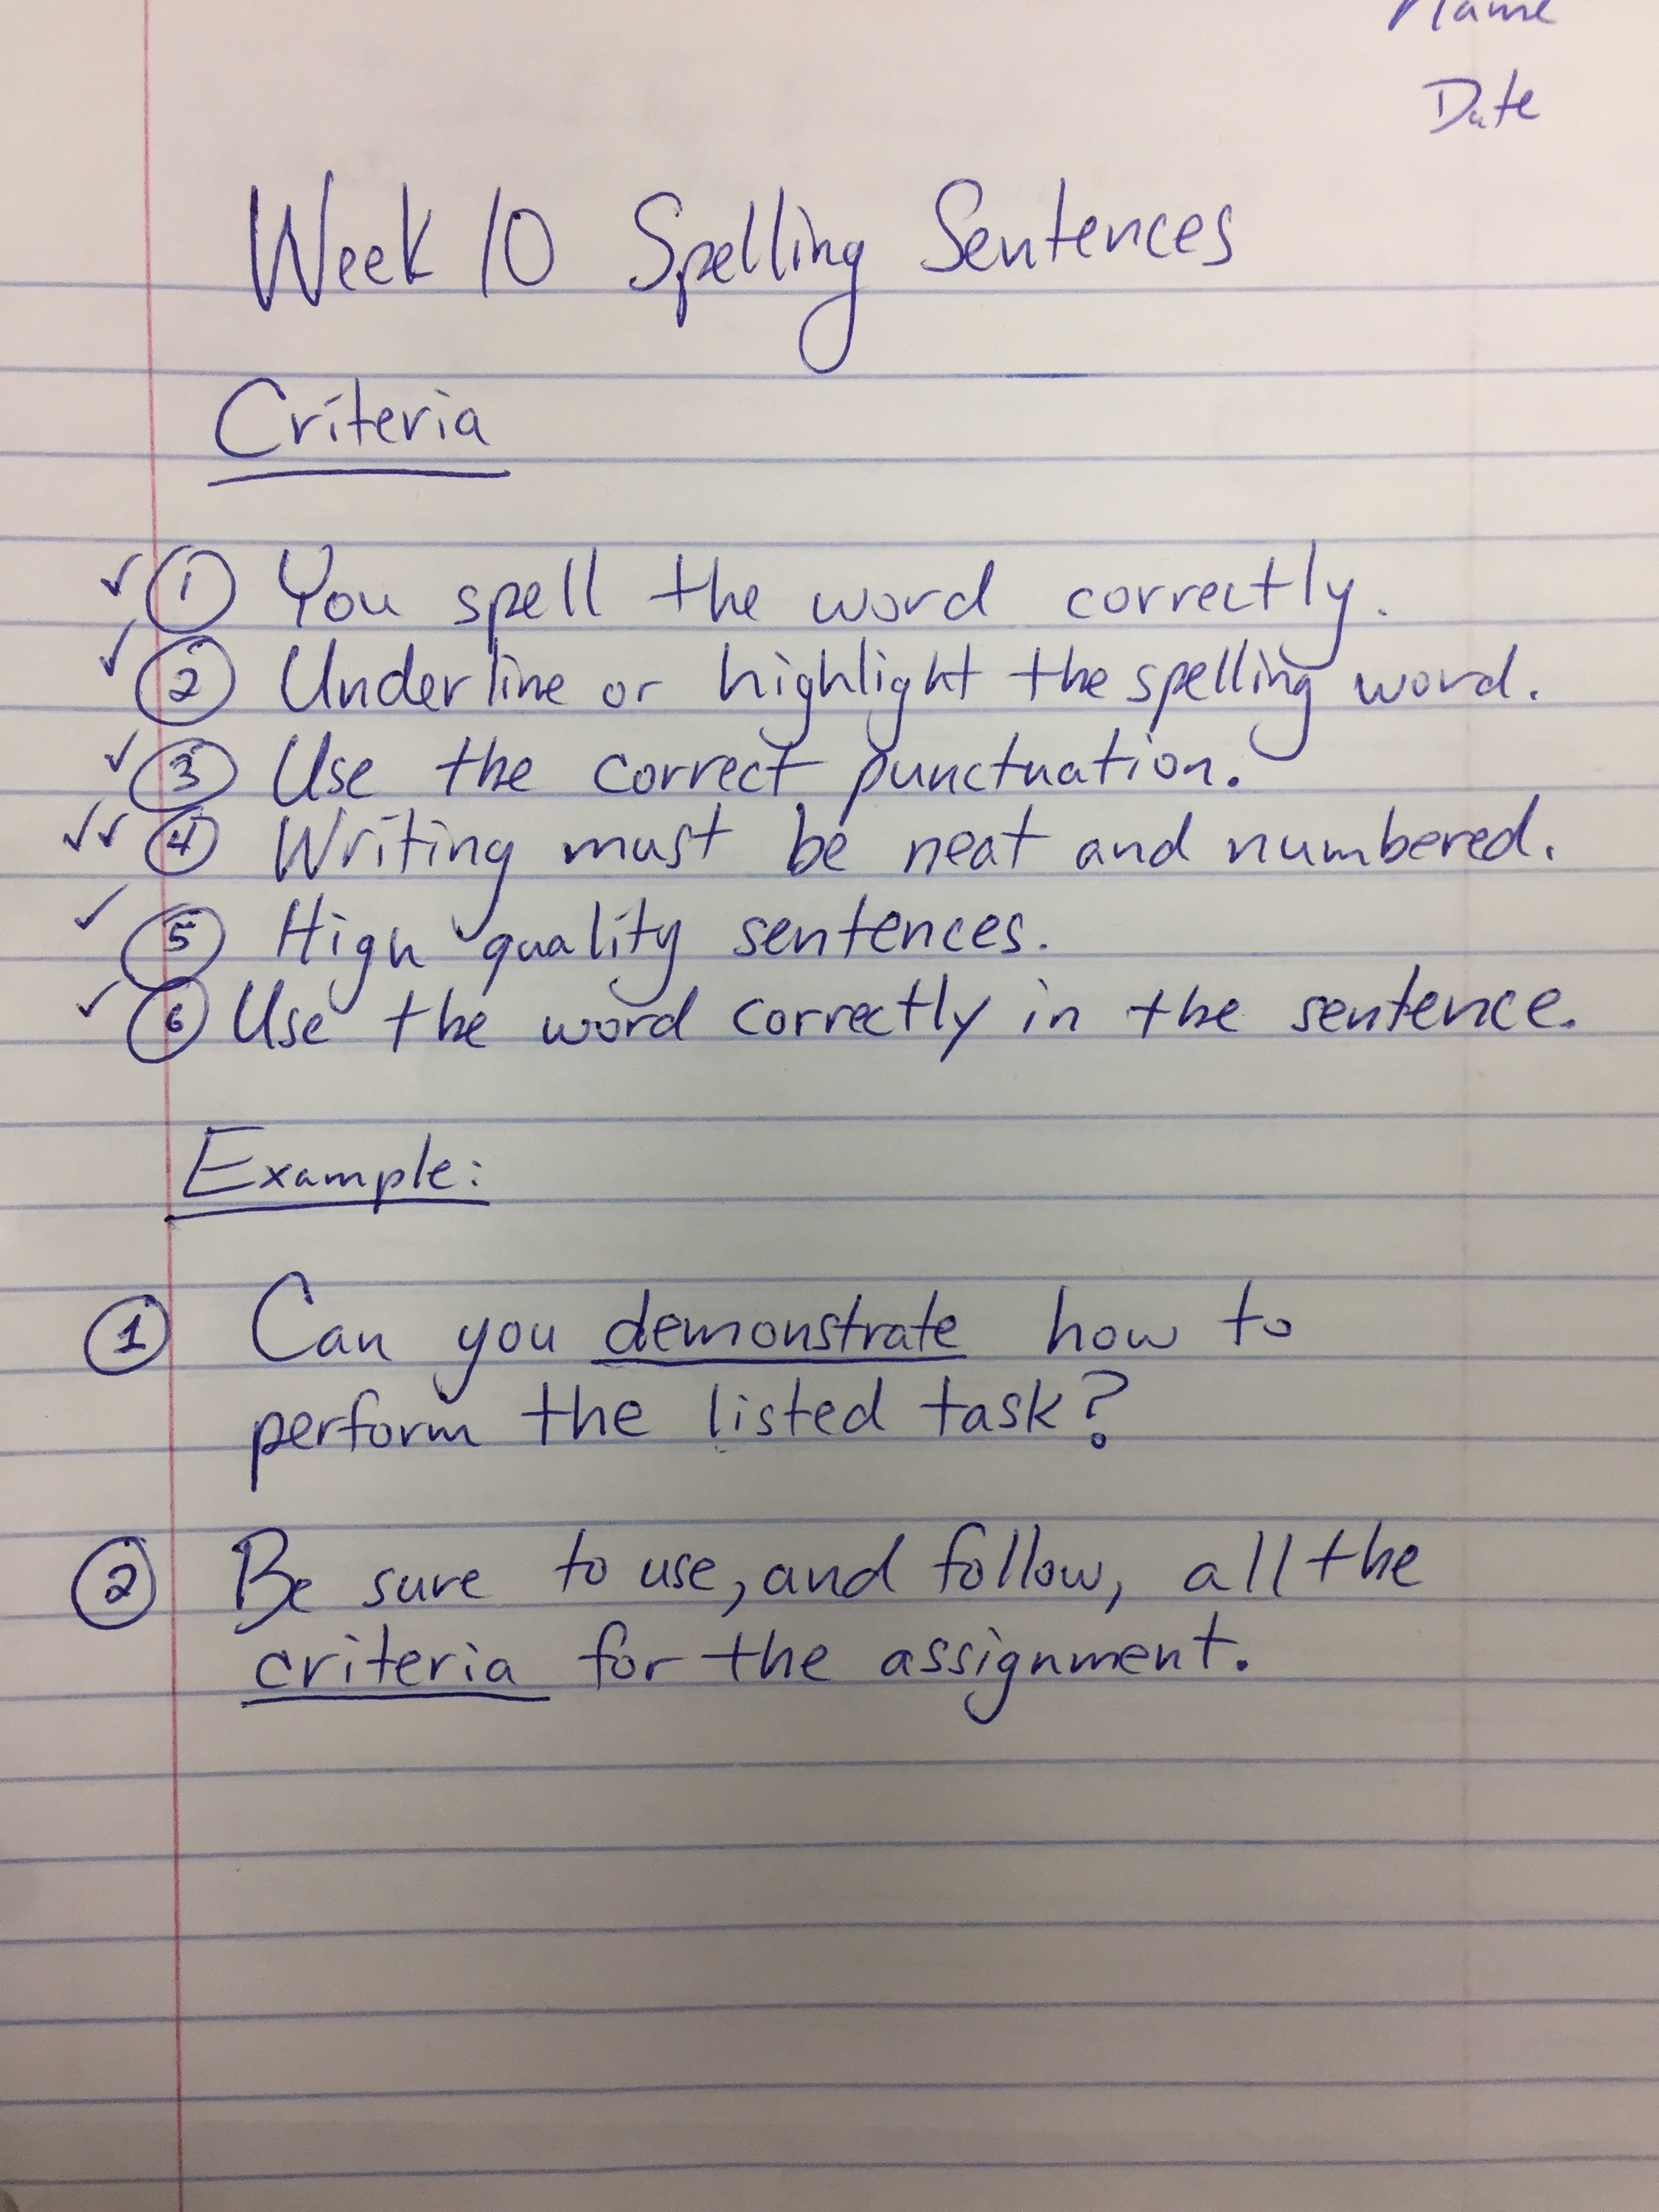 Name
Date
Week 10 Spelling Sentences
Criteria
✓ 1 You spell the word correctly.
✓ 2 Underline or highlight the spelling word.
✓ 3 Use the correct punctuation.
✓✓ 4 Writing must be neat and numbered.
✓ 5 High quality sentences.
✓ 6 Use the word correctly in the sentence.
Example:
1 Can you demonstrate how to
perform the listed task?
2 Be sure to use, and follow, all the
criteria for the assignment.